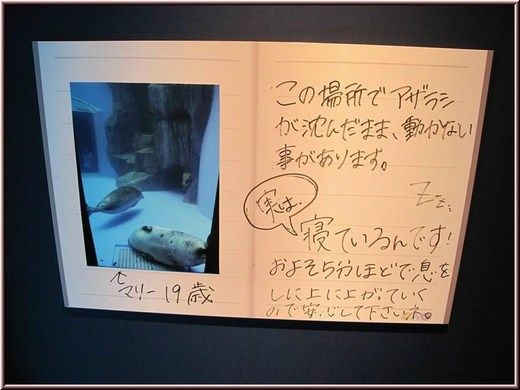 この場所でアザラシ
が沈んだまま、動かない
事があります。
Zz..
実は、
寝ているんです!
およそ5分ほどで息を
しに上に上がっていく
ので安心して下さいネ。
↑
マリー 19歳